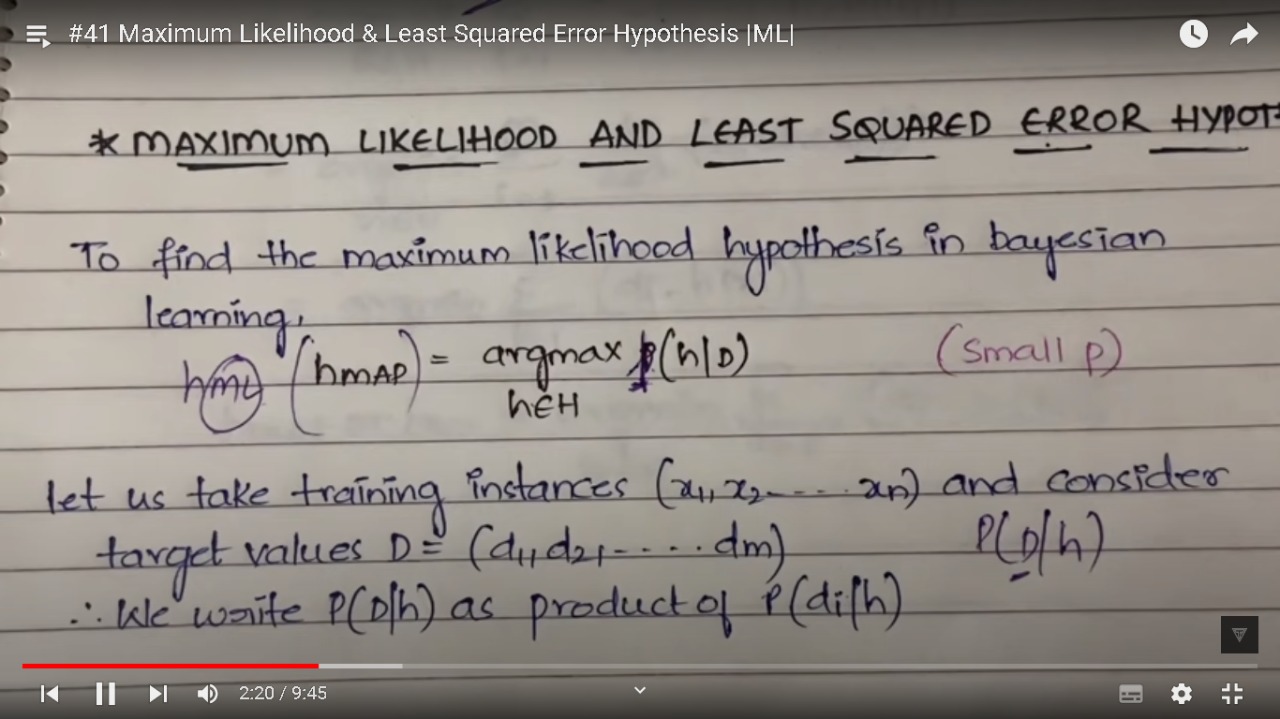 #41 Maximum Likelihood & Least Squared Error Hypothesis |ML|
* MAXIMUM LIKELIHOOD AND LEAST SQUARED ERROR HYPOT
To find the maximum likelihood hypothesis in bayesian
learning,
hML (hMAP) = argmax p(h|D) (small p)
h∈H
let us take training instances (x1, x2, ---- xn) and consider
target values D = (d1, d2, ----- dm) P(D/h)
∴ We write P(D/h) as product of P(di/h)
2:20 / 9:45